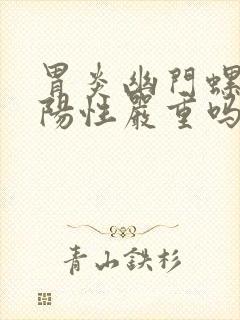 胃炎幽門螺
陽性嚴重嗎
青山鉄杉